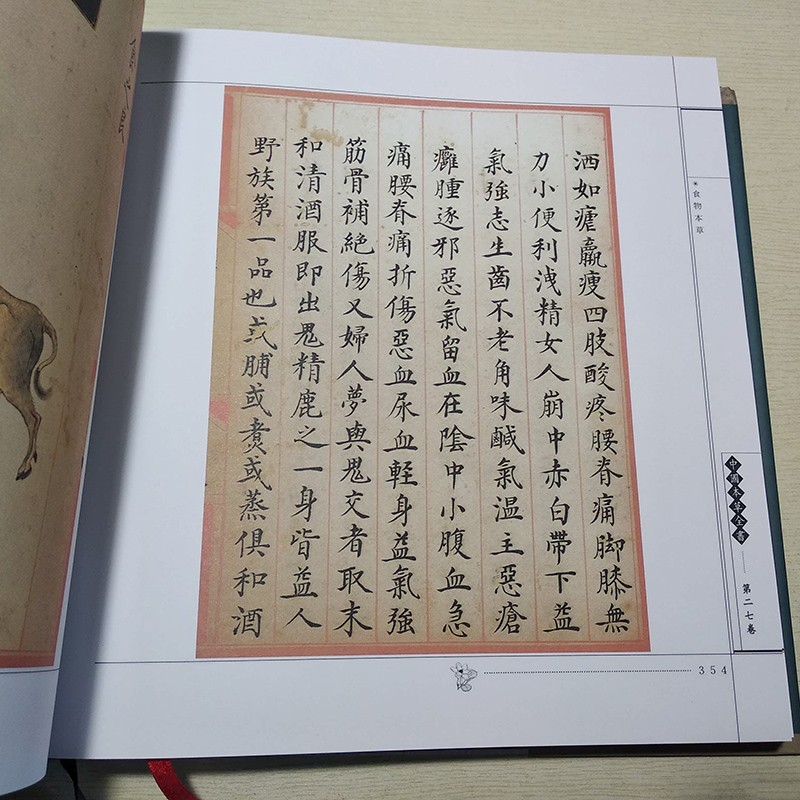 洒如瘧羸瘦四肢酸疼腰脊痛脚膝無
力小便利洩精女人崩中赤白帶下益
氣強志生齒不老角味鹹氣溫主惡瘡
癰腫逐邪惡氣留血在陰中小腹血急
痛腰脊痛折傷惡血尿血輕身益氣強
筋骨補絕傷又婦人夢與鬼交者取末
和清酒服即出鬼精鹿之一身皆益人
野族第一品也或脯或煑或蒸俱和酒
食物本草
中國本草全書
第二七卷
354